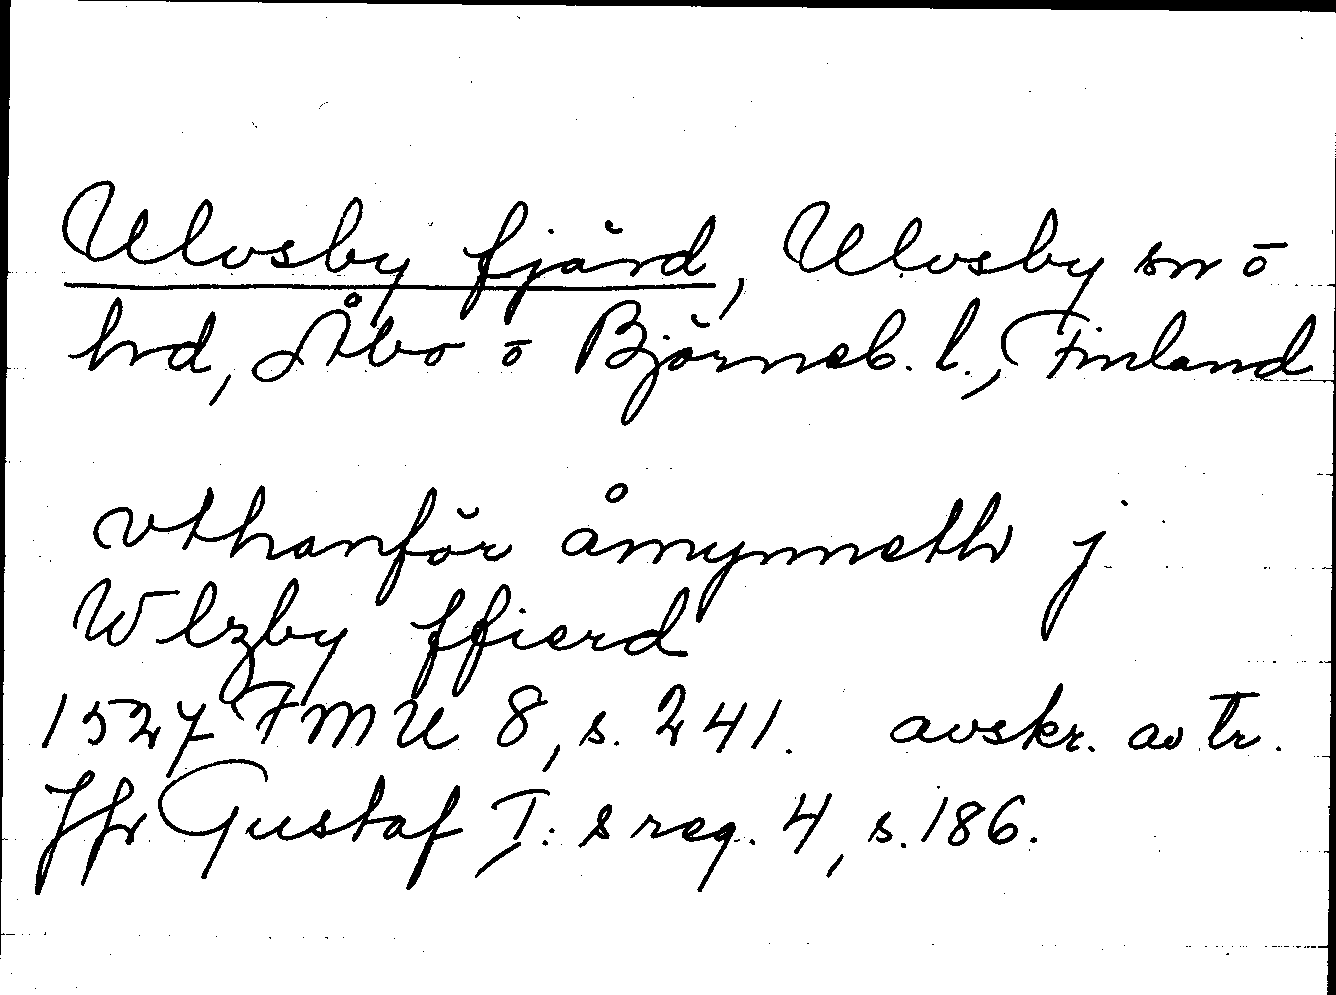 Ulvsby fjärd, Ulvsby sn o
hd, Åbo o Björneb. l., Finland
vthanför åmynneth j
Wlzby ffierd
1527 FMU 8, s. 241. avskr. av tr.
Jfr Gustaf I:s reg. 4, s. 186.